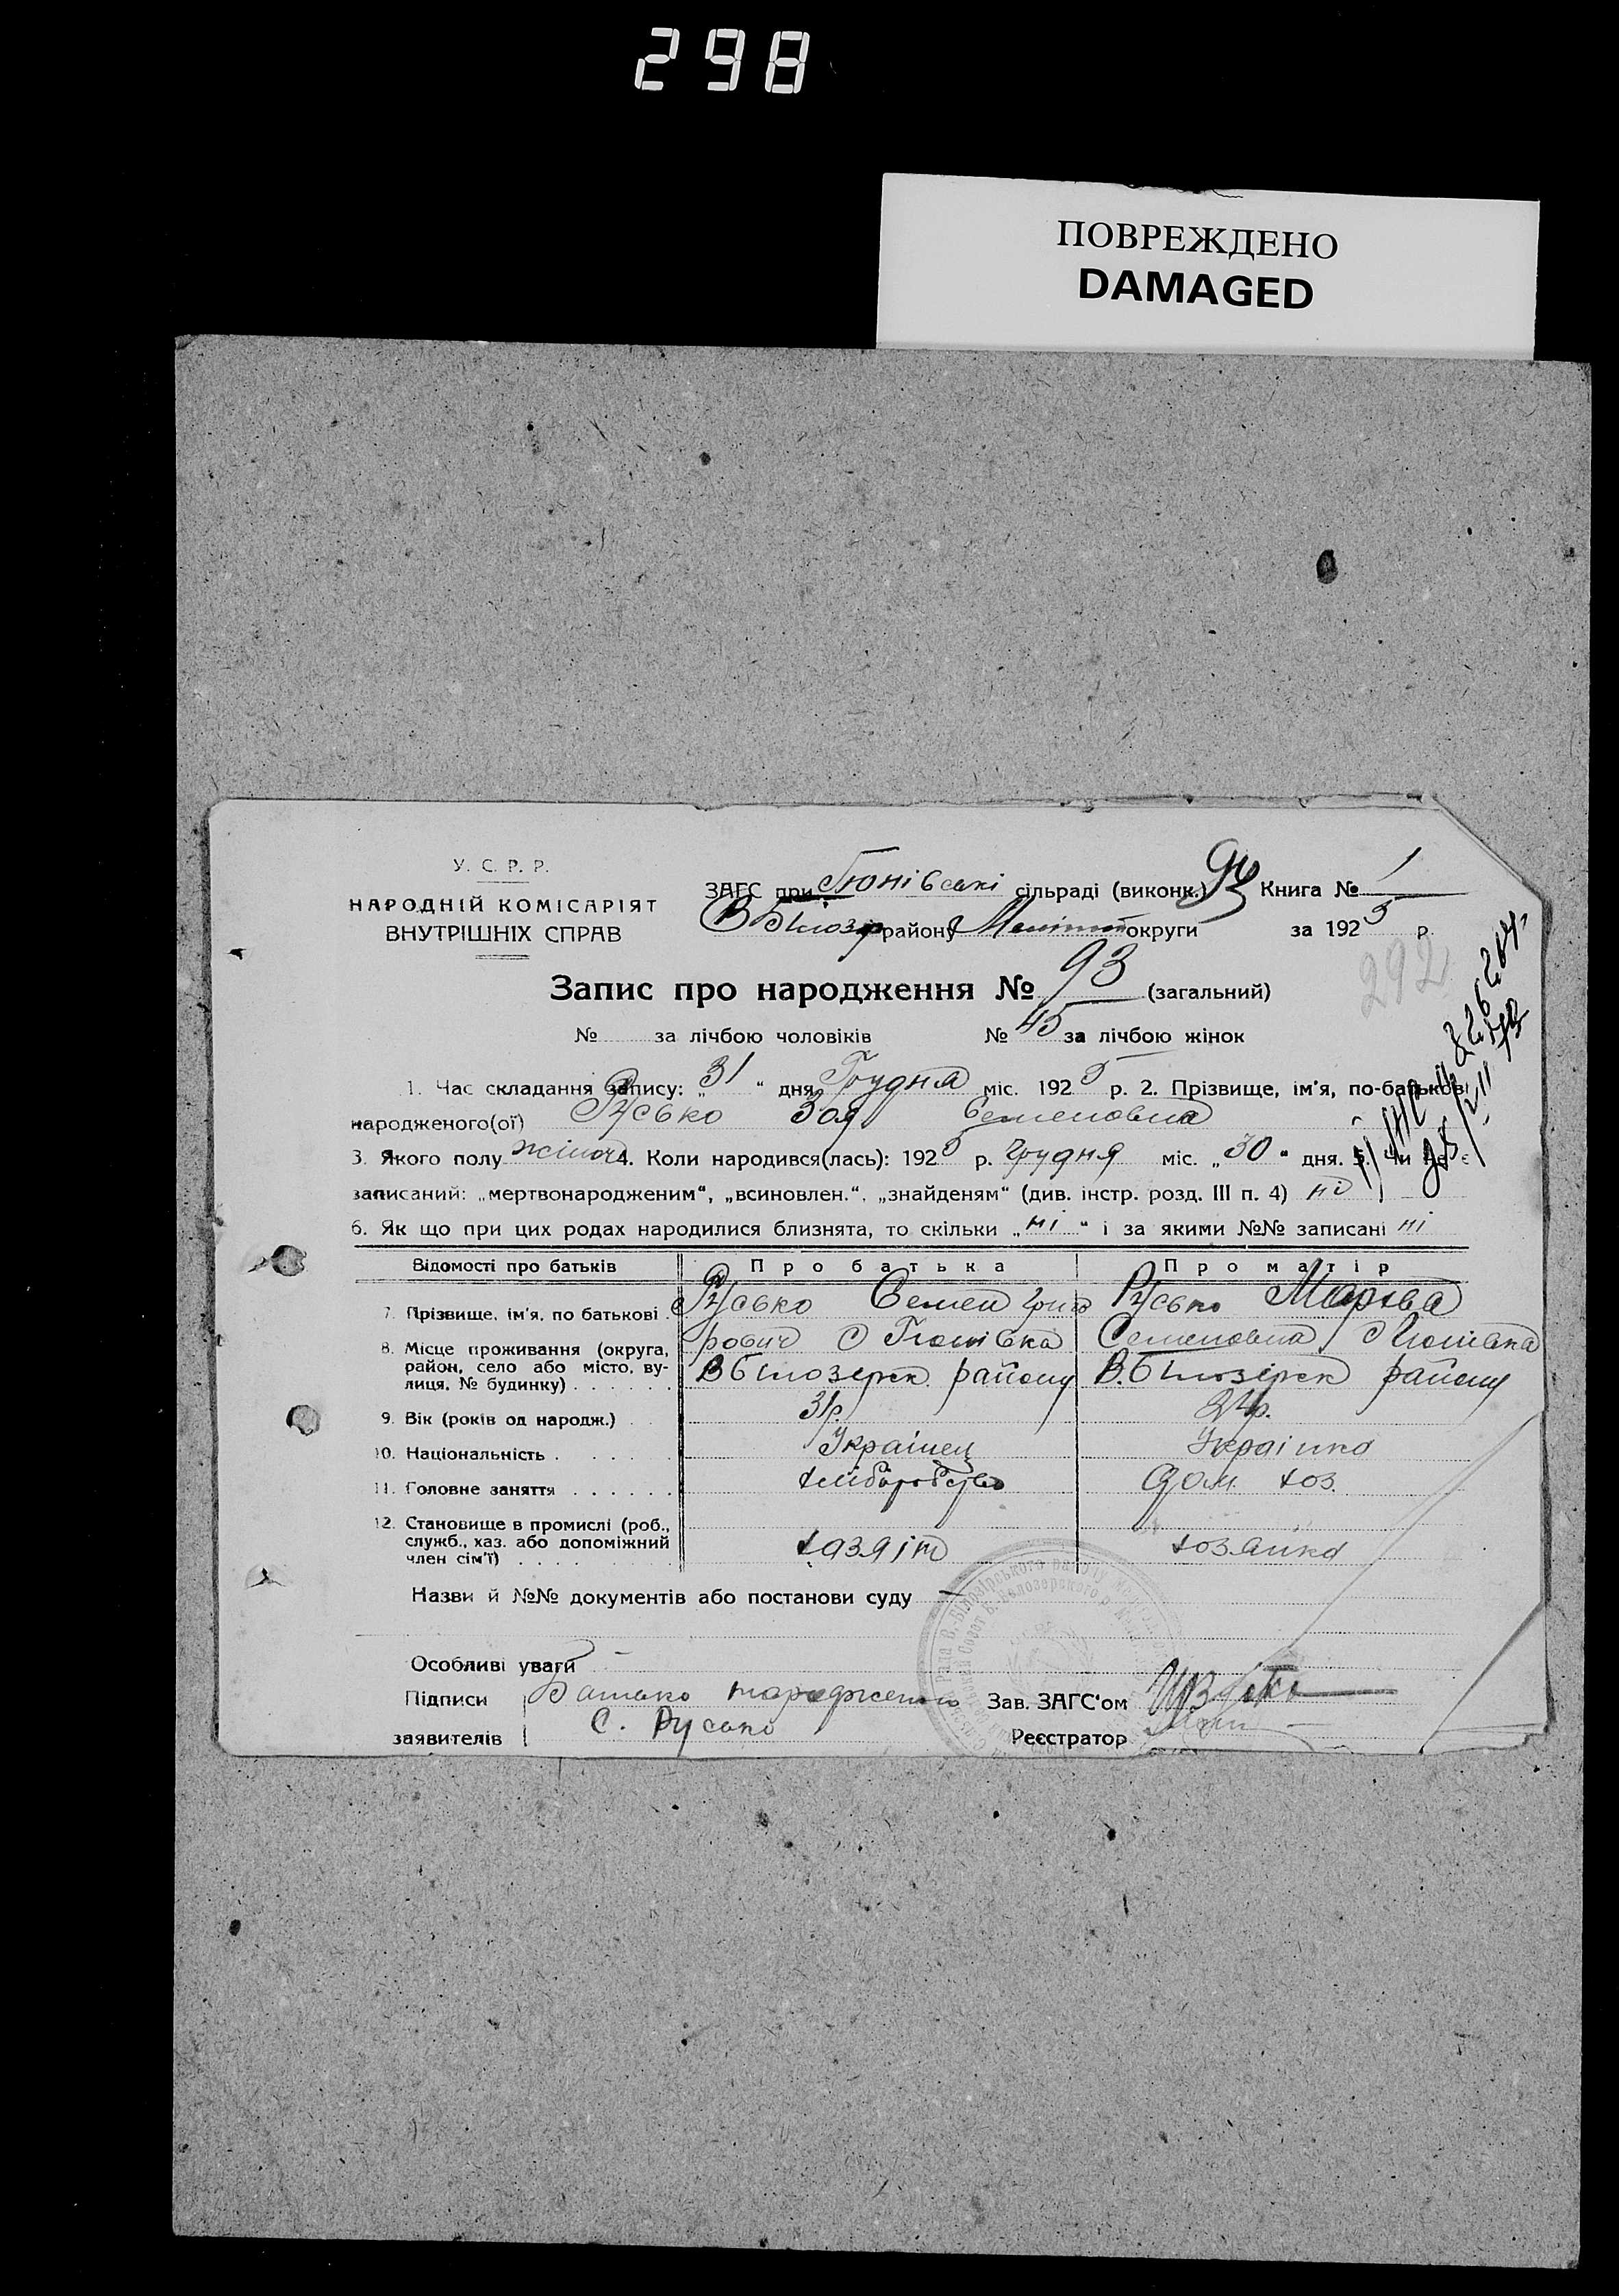 298
ПОВРЕЖДЕНО
DAMAGED
У. С. Р. Р.
НАРОДНІЙ КОМІСАРІЯТ
ВНУТРІШНІХ СПРАВ
ЗАГС при Гюнівські сільраді (виконк.) Книга № 1
В Білозір району Меліт округи за 1925 р.
292
Запис про народження № 93 (загальний)
№ за лічбою чоловіків № 45 за лічбою жінок
1. Час складання запису: „31“ дня Грудня міс. 1925 р. 2. Прізвище, ім'я, по-батькові
народженого(ої) Русько Зоя Семеновна
3. Якого полу жіноч 4. Коли народився(лась): 1925 р. Грудня міс. „30“ дня. 5. Чи не є
записаний: „мертвонародженим“, „всиновлен.“, „знайденям“ (див. інстр. розд. III п. 4) ні
6. Як що при цих родах народилися близнята, то скільки „ні“ і за якими №№ записані ні
Відомості про батьків Про батька Про матір
7. Прізвище, ім'я, по батькові Русько Семен Григо Русько
8. Місце проживання (округа, рович с Гюнівка Семеновна с Гюнівка
район, село або місто, ву- В Білозерск району В. Білозерск району
лиця, № будинку)
9. Вік (років од народж.) 31р. 24р.
10. Національність Українец Українка
11. Головне заняття хліборобство Дом. хоз.
12. Становище в промислі (роб.,
служб., хаз. або допоміжний хазяїн хозяйка
член сім'ї)
Назви й №№ документів або постанови суду —
Особливі уваги —
Підписи Батько народженого Зав. ЗАГС'ом
заявителів С. Русько Реєстратор